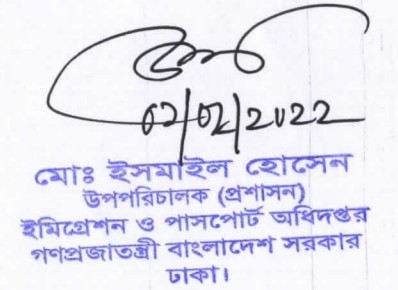 ০২/০২/২০২২
মোঃ ইসমাইল হোসেন
উপপরিচালক (প্রশাসন)
ইমিগ্রেশন ও পাসপোর্ট অধিদপ্তর
গণপ্রজাতন্ত্রী বাংলাদেশ সরকার
ঢাকা।